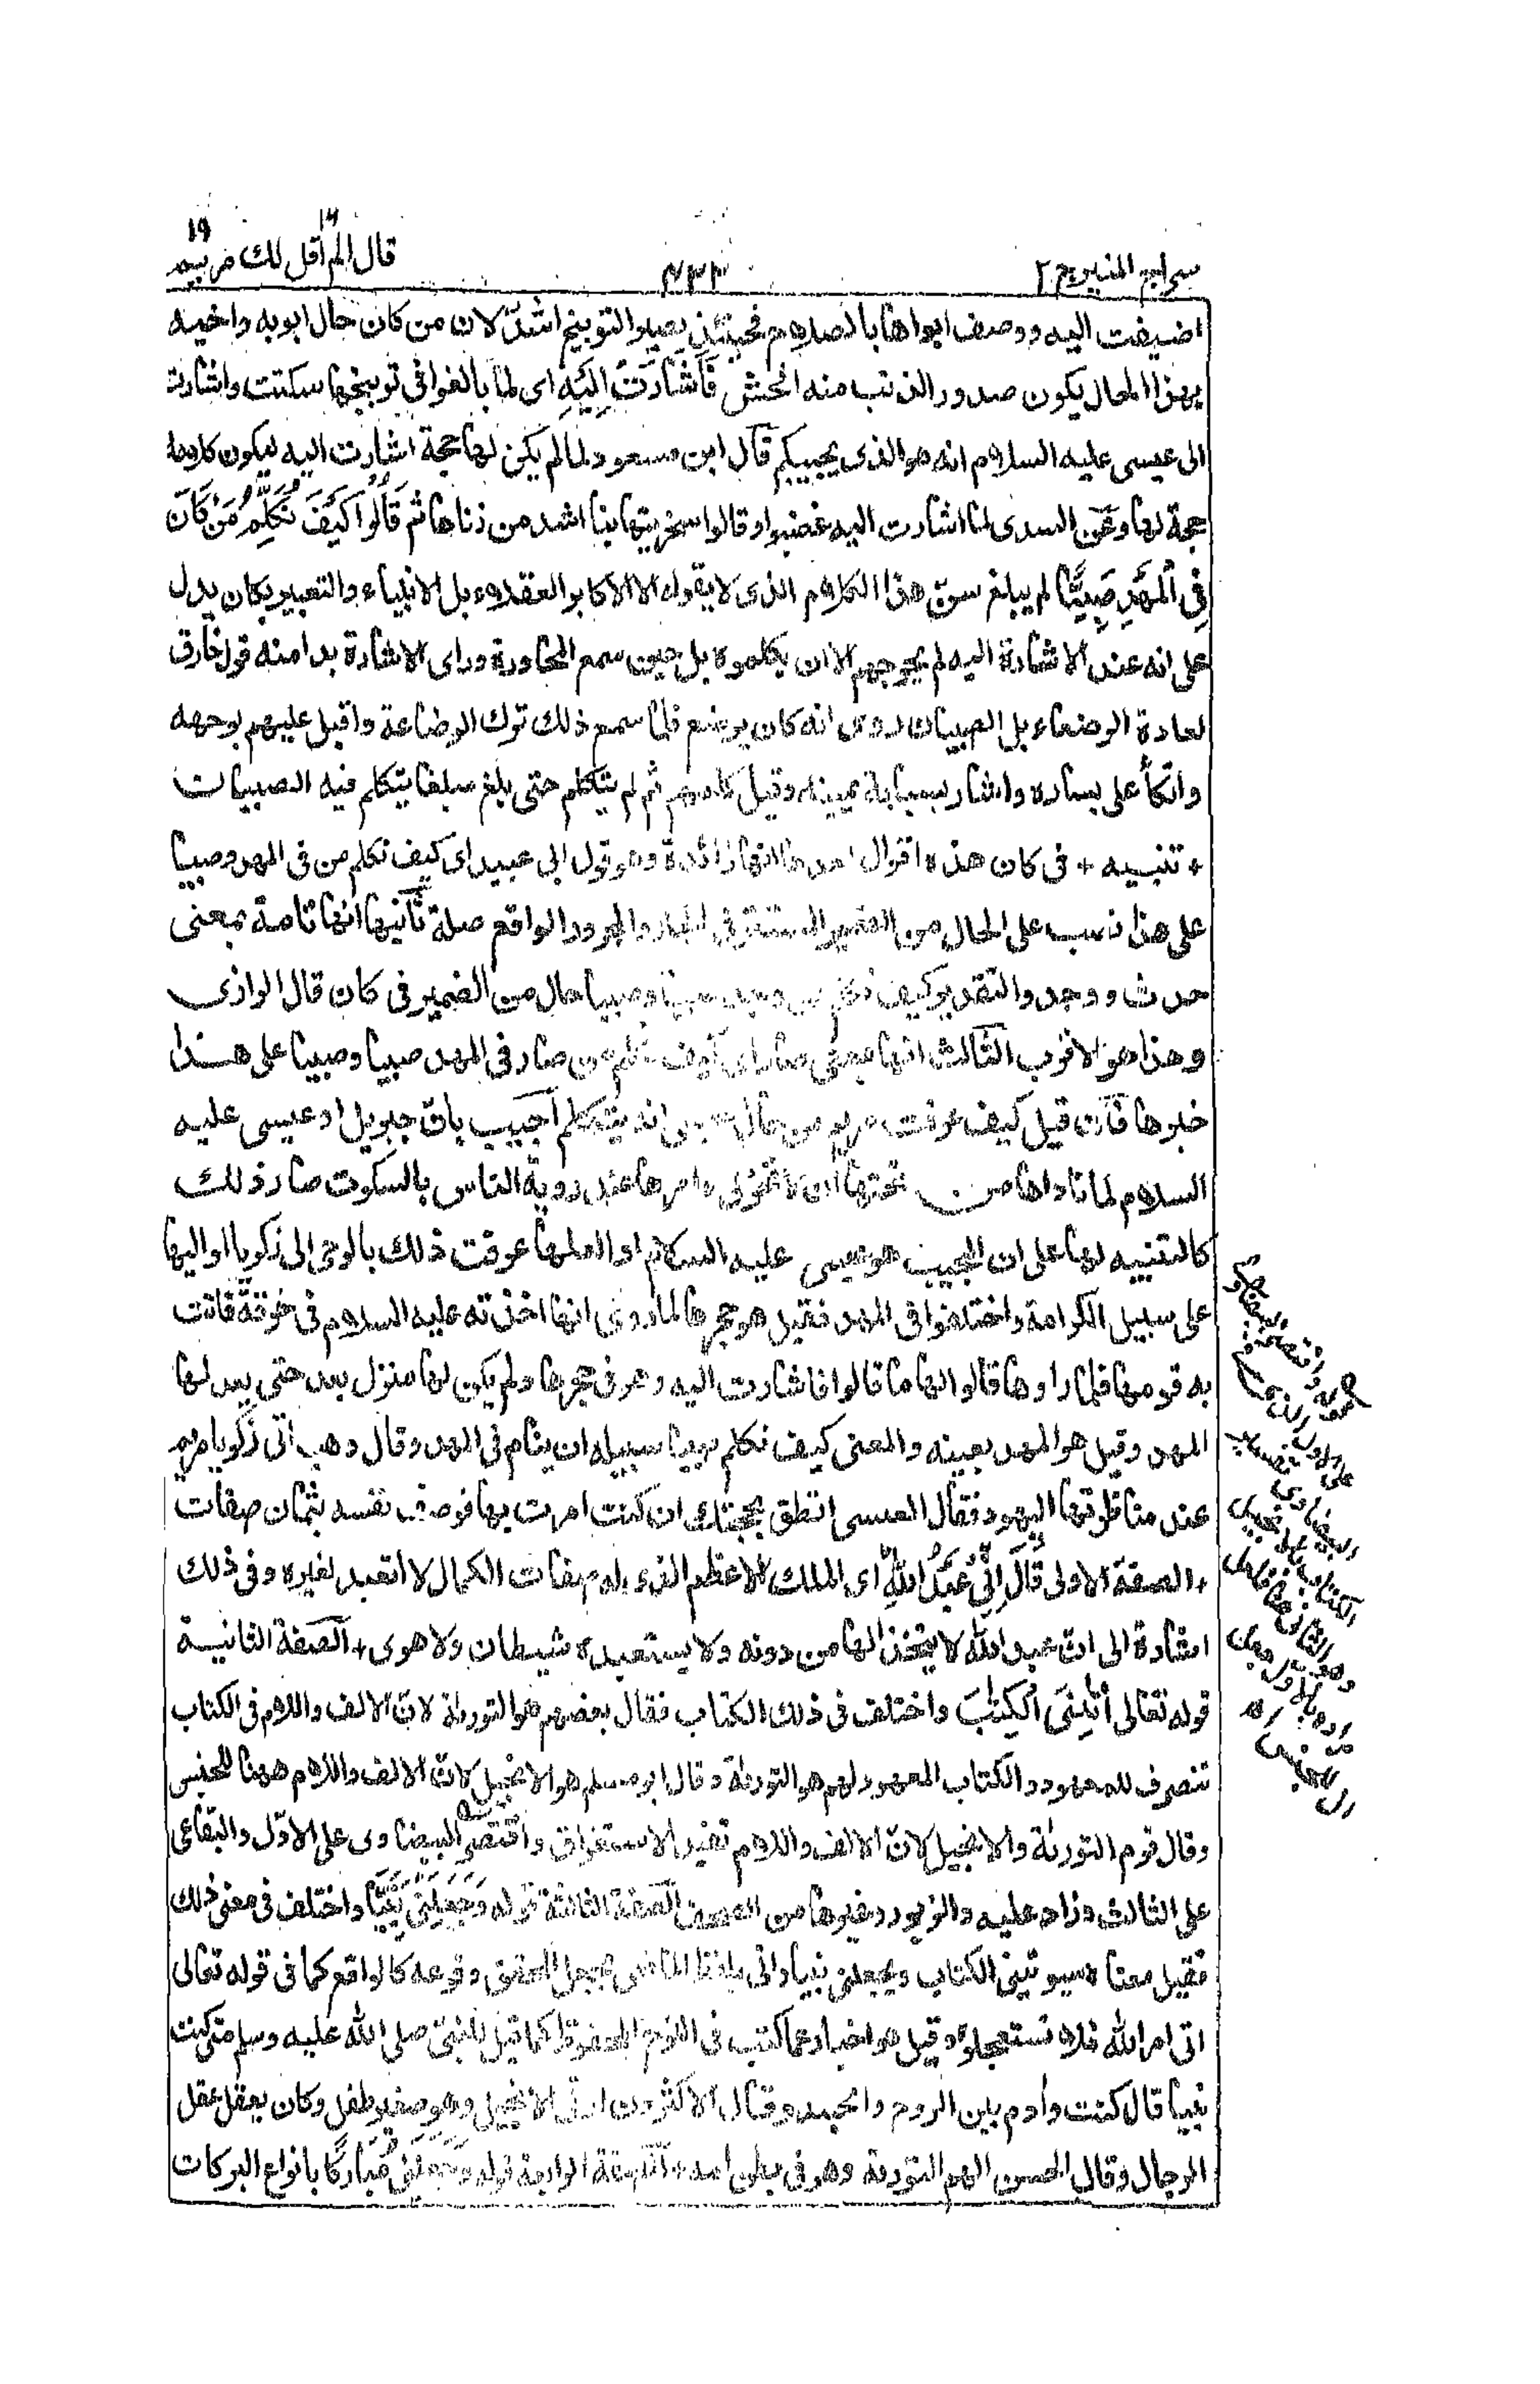 سراج المنير ج ٢
٤٣٣
قال الم اقل لك ١٦ مريم ١٩
اضيفت اليه ووصف ابواها بالصلاح فحينئذ يصير التوبيخ اشدّ لان من كان حال ابويه واخيه
بهذا الحال يكون صدور الذنب منه افحش فَأَشَارَتْ إِلَيْهِ اى لما بالغوا فى توبيخها سكتت واشارت
الى عيسى عليه السلام انه هو الذى يجيبكم قال ابن مسعود لما لم يكن لها حجة اشارت اليه ليكون كلامه
حجة لها وعن السدى لما اشارت اليه غضبوا وقالوا سخريتها بنا اشد من زناها ثم قَالُوا كَيْفَ نُكَلِّمُ مَنْ كَانَ
فِي الْمَهْدِ صَبِيًّا لم يبلغ سنّ هذا الكلام الذى لا يقوله الا الاكابر العقلاء بل الانبياء والتعبير بكان يدل
على انه عند الاشارة اليه لم يحوجهم الا ان يكلموه بل حين سمع المحاورة وراى الاشارة بدا منه قول خارق
لعادة الرضعاء بل الصبيان روى انه كان يرضع فلما سمع ذلك ترك الرضاعة واقبل عليهم بوجهه
واتكأ على يساره واشار بسبابة يمينه وقيل كلمهم ثم لم يتكلم حتى بلغ مبلغا يتكلم فيه الصبيان
+ تنبيه + فى كان هذه اقوال احدها انها زائدة وهو قول ابى عبيد اى كيف نكلم من فى المهد وصبيا
على هذا نصب على الحال من الضمير المستتر فى الجار والمجرور الواقع صلة ثانيها انها تامة بمعنى
حدث ووجد والتقدير كيف نكلم من وجد صبيا وصبيا حال من الضمير فى كان قال الرازى
وهذا هو الاقرب الثالث انها بمعنى صار اى كيف نكلم من صار فى المهد صبيا وصبيا على هذا
خبرها فان قيل كيف عرفت مريم من حال عيسى انه يتكلم اجيب بان جبريل او عيسى عليه
السلام لما ناداها من تحتها ان لا تحزنى وامرها عند روية الناس بالسكوت صار ذلك
كالتنبيه لها على ان المجيب هو عيسى عليه السلام او لعلها عرفت ذلك بالوحى الى زكريا او اليها
على سبيل الكرامة واختلفوا فى المهد فقيل هو حجرها لما روى انها اخذته عليه السلام فى خرقة فاتت
به قومها فلما راوها قالوا لها ما قالوا فاشارت اليه وهو فى حجرها ولم يكن لها منزل بعد حتى يعد لها
المهد وقيل هو المهد بعينه والمعنى كيف نكلم صبيا سبيله ان ينام فى المهد وقال وهب اتى زكريا مريم
عند مناظرتها اليهود فقال لعيسى انطق بحجتك ان كنت امرت بها فوصف نفسه بثمان صفات
+ الصفة الاولى قَالَ إِنِّي عَبْدُ اللهِ اى الملك الاعظم الذى له صفات الكمال لا اتعبد لغيره وفى ذلك
اشارة الى ان عبد الله لا يتخذ الها من دونه ولا يستعبده شيطان ولا هوى + الصفة الثانية
قوله تعالى أٰتٰنِيَ الْكِتٰبَ واختلف فى ذلك الكتاب فقال بعضهم هو التورٰىة لان الالف واللام فى الكتاب
تنصرف للمعهود والكتاب المعهود لهم هو التورٰىة وقال ابو مسلم هو الانجيل لان الالف واللام ههنا للجنس
وقال قوم التورٰىة والانجيل لان الالف واللام تفيد الاستغراق واقتصر البيضاوى على الاول والبقاعى
على الثالث وزاد عليه والزبور وغيرها من الصحف الصفة الثالثة قوله وَجَعَلَنِي نَبِيًّا واختلف فى معنى ذلك
فقيل معناه سيوتينى الكتاب ويجعلنى نبيا واتى بلفظ الماضى بجعل المحقق وقوعه كالواقع كما فى قوله تعالى
اتى امر الله فلا تستعجلوه وقيل هو اخبار عما كتب فى اللوح المحفوظ كما قيل للنبى صلى الله عليه وسلم متى كنت
نبيا قال كنت وادم بين الروح والجسد وقال الاكثرون اوتى الانجيل وهو صغير طفل وكان يعقل عقل
الرجال وقال الحسن الهم التورٰىة وهو فى بطن امه الصفة الرابعة قوله وَجَعَلَنِي مُبَارَكًا بانواع البركات
البيضاوى
الكتاب بالانجيل